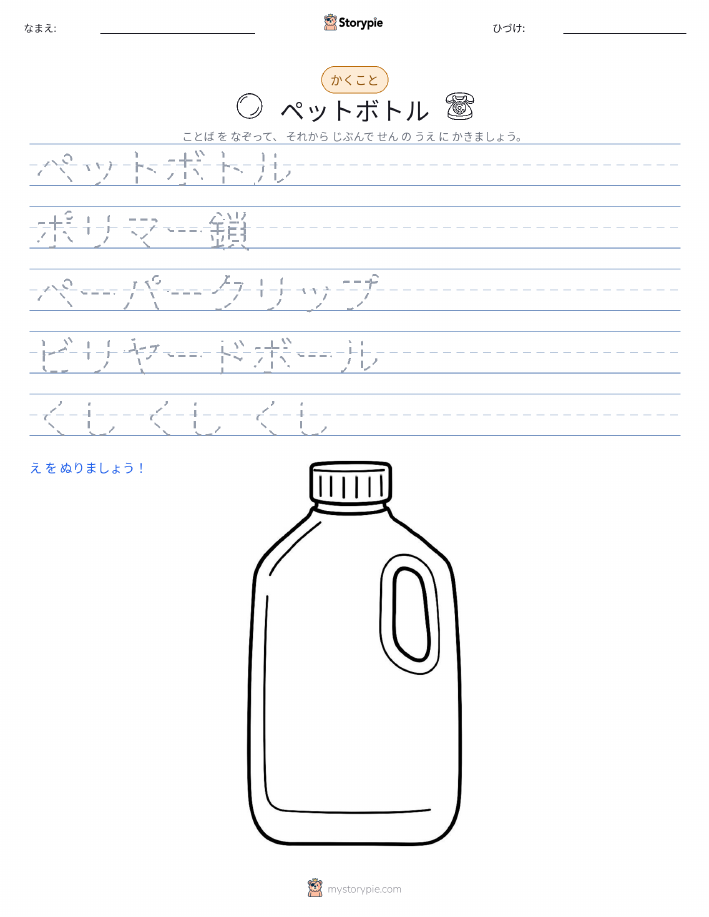 なまえ:
Storypie
ひづけ:
かくこと
ペットボトル
ことば を なぞって、 それから じぶんで せん の うえ に かきましょう。
ペットボトル
ポリマー鎖
ペーパークリップ
ビリヤードボール
くし くし くし
え を ぬりましょう！
mystorypie.com